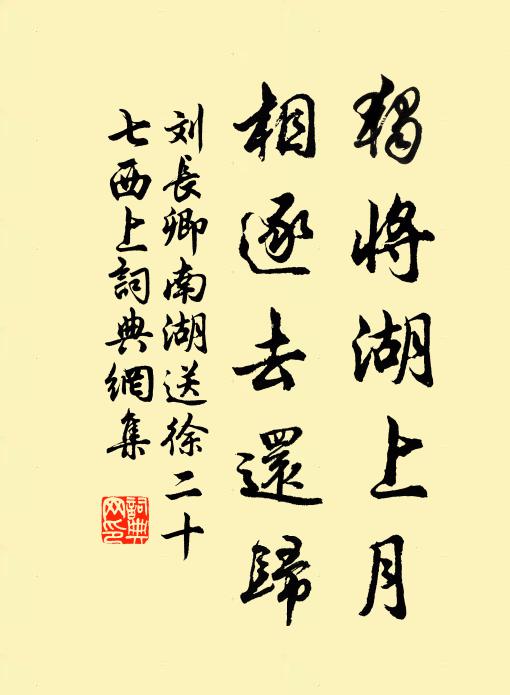 獨將湖上月
相逐去還歸
刘長卿南湖送徐二十
七西上詞典網集
詞典
网印